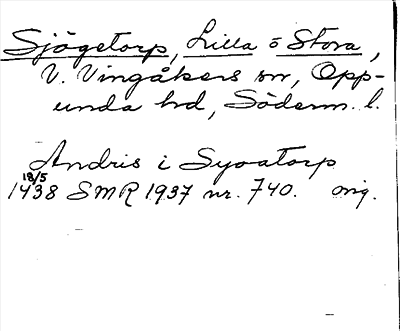 Sjögetorp, Lilla o Stora,
V. Vingåkers sn, Opp-
unda hd, Söderm. l.
Andris i Syoatorp
18/5
1438 SMR 1937 nr. 740. orig.